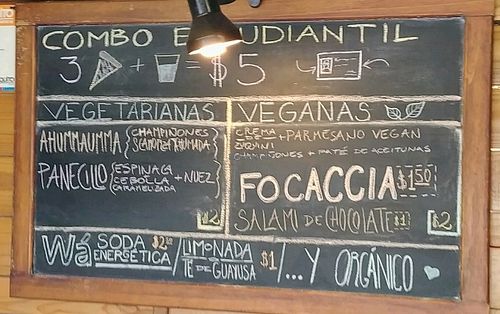 COMBO ESTUDIANTIL
3 + = $5
VEGETARIANAS
AHUMMAUMMA CHAMPIÑONES
PANECILLO ESPINACA
CEBOLLA + NUEZ
CARAMELIZADA
$2
VEGANAS
CREMA
DE + PARMESANO VEGAN
CHAMPIÑONES + PATÉ DE ACEITUNAS
FOCACCIA $1.50
SALAMI DE CHOCOLATE $1
$2
Wá SODA $2.50
ENERGÉTICA
/ LIMONADA
TÉ DE GUAYUSA $1
/... Y ORGÁNICO